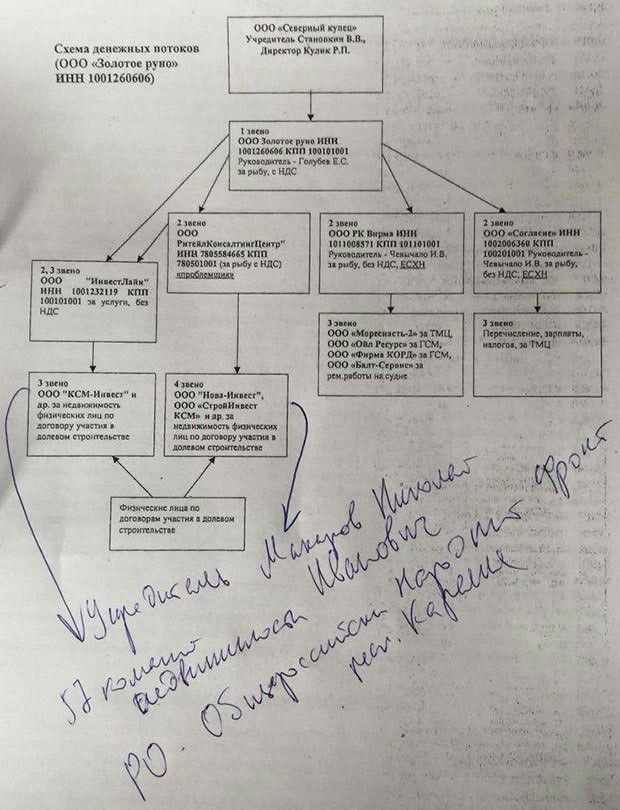 Схема денежных потоков
(ООО «Золотое руно»
ИНН 1001260606)
ООО «Северный купец»
Учредитель Становкин В.В.,
Директор Кулик Р.П.
1 звено
ООО Золотое руно ИНН
1001260606 КПП 100101001
Руководитель - Голубев Е.С.
за рыбу, с НДС
2, 3 звено
ООО "ИнвестЛайн"
ИНН 1001232119 КПП
100101001 за услуги, без
НДС
2 звено
ООО
РитейлКонсалтингЦентр"
ИНН 7805584665 КПП
780501001 (за рыбу с НДС)
«проблемщик»
2 звено
ООО РК Вирма ИНН
1011008571 КПП 101101001
Руководитель - Чевычало И.В.
за рыбу, без НДС, ЕСХН
2 звено
ООО «Согласие» ИНН
1002006360 КПП
100201001 Руководитель -
Чевычало И.В. за рыбу,
без НДС; ЕСХН
3 звено
ООО «Мореснасть-2» за ТМЦ,
ООО «Ойл Ресурс» за ГСМ,
ООО «Фирма КОРД» за ГСМ,
ООО «Балт-Сервис» за
рем.работы на судне
3 звено
Перечисление, зарплаты,
налогов, за ТМЦ
3 звено
ООО "КСМ-Инвест" и
др. за недвижимость
физических лиц по
договору участия в
долевом строительстве
4 звено
ООО "Нова-Инвест",
ООО «СтройИнвест
КСМ» и др. за
недвижимость физических
лиц по договору участия в
долевом строительстве
Физические лица по
договорам участия в долевом
строительстве
Учредитель Макаров Николай
Иванович
57
недвижимости
РО Общероссийски народный фронт
респ. Карелия